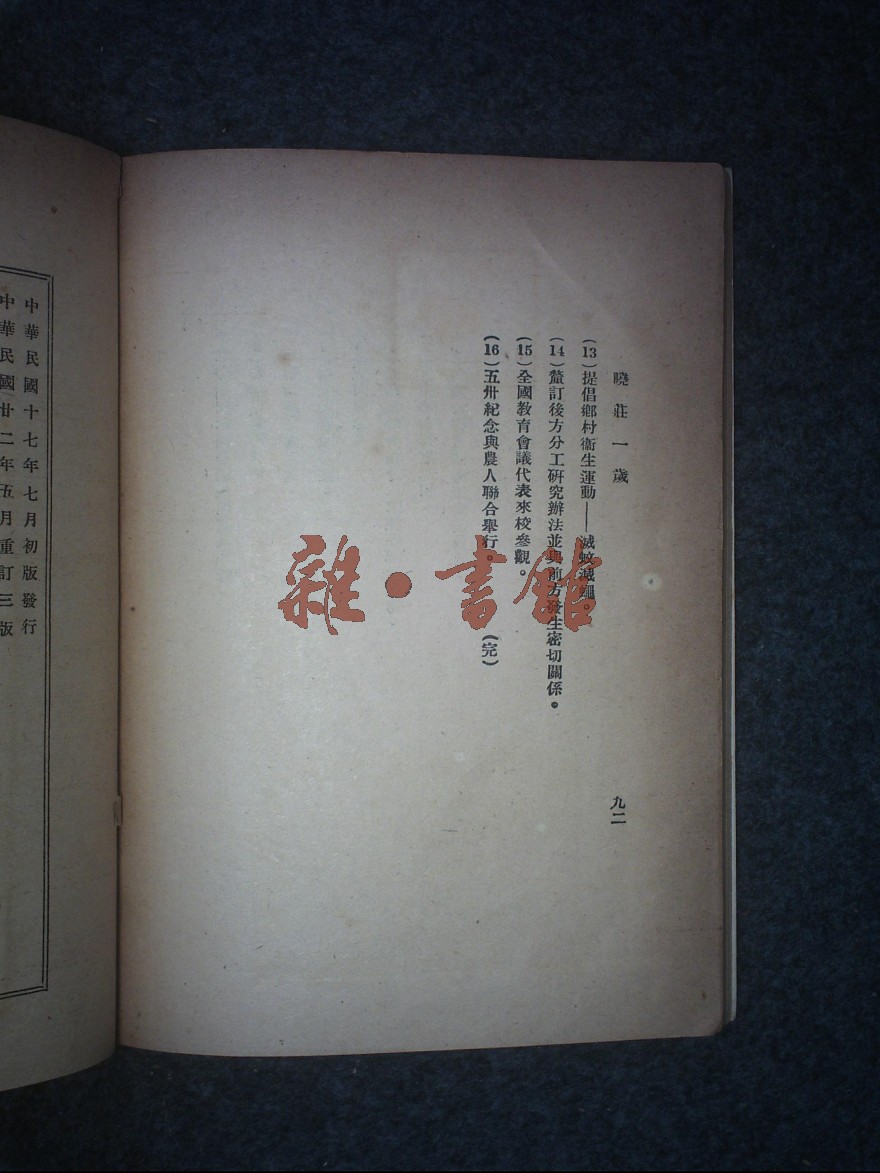 曉莊一歲
(13)提倡鄉村衞生運動——滅蚊滅蠅。
(14)釐訂後方分工研究辦法並與前方發生密切關係。
(15)全國教育會議代表來校參觀。
(16)五卅紀念與農人聯合舉行。 (完)
九二
中華民國十七年七月初版發行
中華民國廿二年五月重訂三版
雜·書館